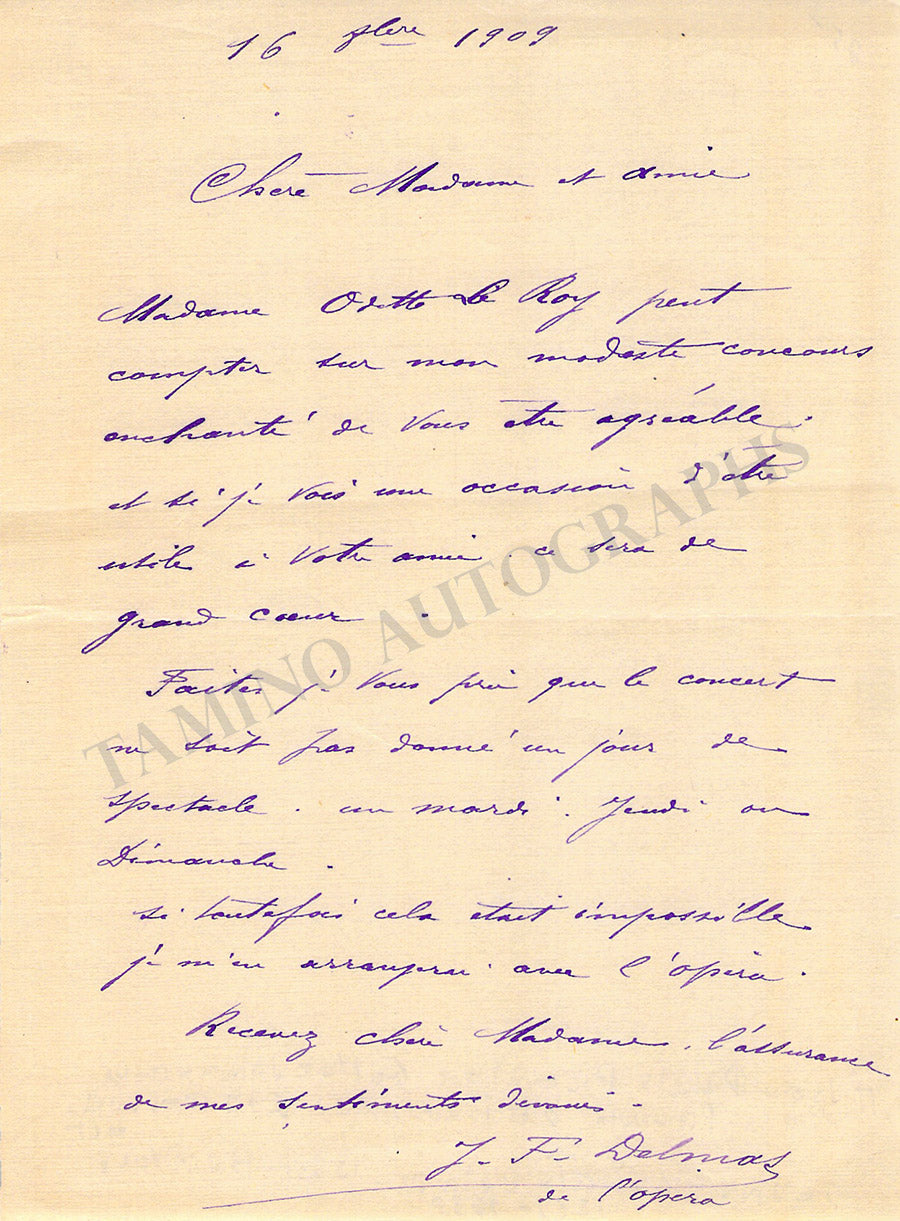 16 1909
Chère Madame et amie
Madame Odette Le Roy peut
compter sur mon modeste concours
enchanté de vous être agréable.
et si je vois une occasion d'être
utile à votre amie. ce sera de
grand cœur.
Faites je vous prie que le concert
ne soit pas donné un jour de
spectacle. un mardi. Jeudi ou
Dimanche.
si toutefois cela était impossible
je m'en arrangerai avec l'opéra.
Recevez chère Madame. l'assurance
de mes sentiments dévoués.
J. F. Delmas
de l'opéra
TAMINO AUTOGRAPHS